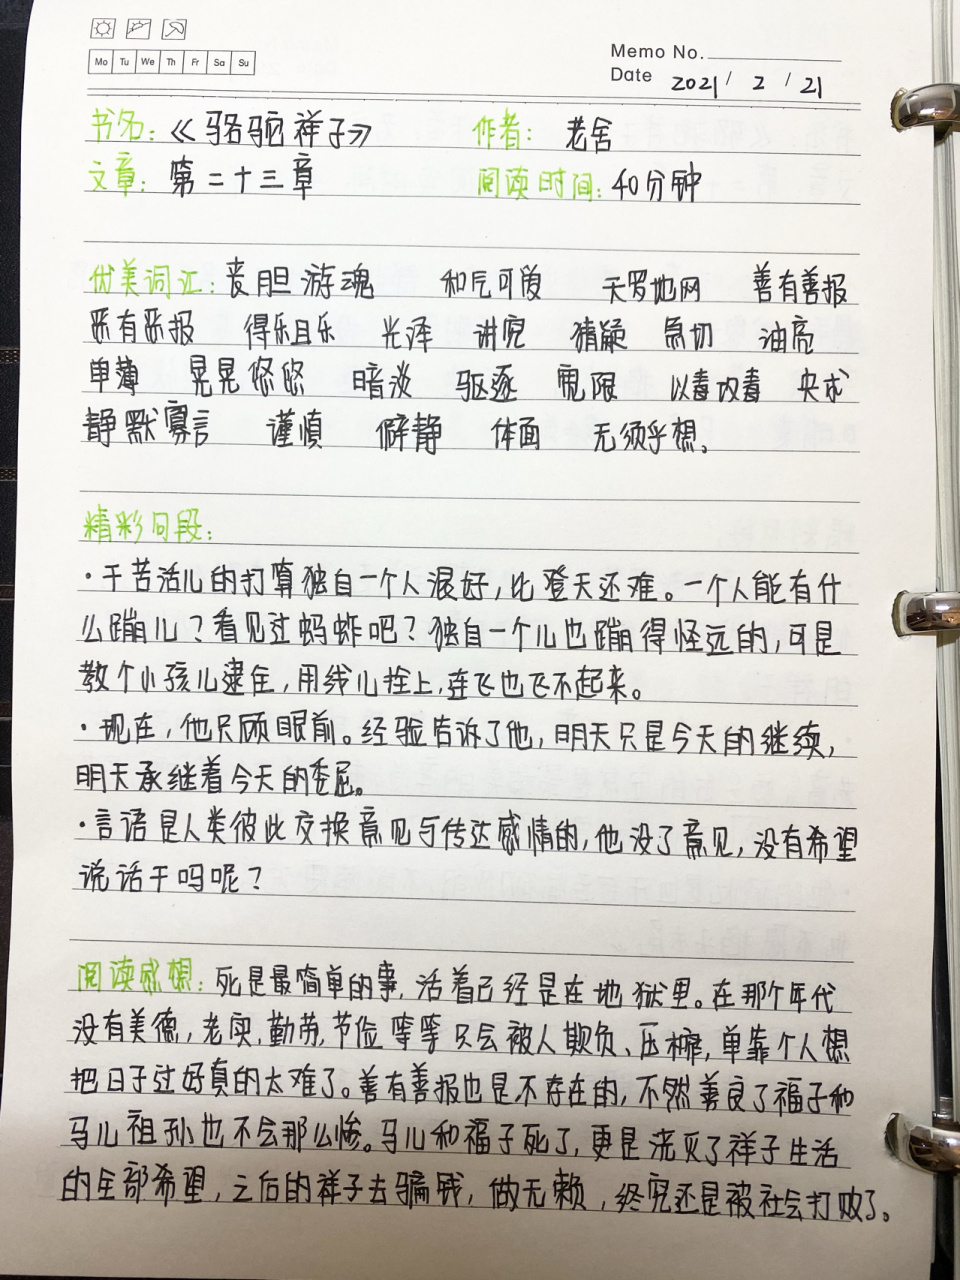 Mo Tu We Th Fr Sa Su
Memo No.
Date 2021 / 2 / 21
书名：《骆驼祥子》 作者：老舍
文章：第二十三章 阅读时间：40分钟
优美词汇：丧胆游魂 和气可爱 天罗地网 善有善报
恶有恶报 得乐且乐 光泽 讲究 猜疑 急切 油亮
单薄 晃晃悠悠 暗淡 驱逐 宽限 以毒攻毒 央求
静默寡言 谨慎 僻静 体面 无须乎想。
精彩句段：
·干苦活儿的打算独自一个人混好，比登天还难。一个人能有什
么蹦儿？看见过蚂蚱吧？独自一个儿也蹦得怪远的，可是
教个小孩儿逮住，用线儿拴上，连飞也飞不起来。
·现在，他只顾眼前。经验告诉了他，明天只是今天的继续，
明天承继着今天的委屈。
·言语是人类彼此交换意见与传达感情的，他没了意见，没有希望
说话干吗呢？
阅读感想：死是最简单的事，活着已经是在地狱里。在那个年代
没有美德，老实，勤劳，节俭等等只会被人欺负、压榨，单靠个人想
把日子过好真的太难了。善有善报也是不存在的，不然善良了福子和
马儿祖孙也不会那么惨。马儿和福子死了，更是浇灭了祥子生活
的全部希望，之后的祥子去骗钱，做无赖，终究还是被社会打败了。